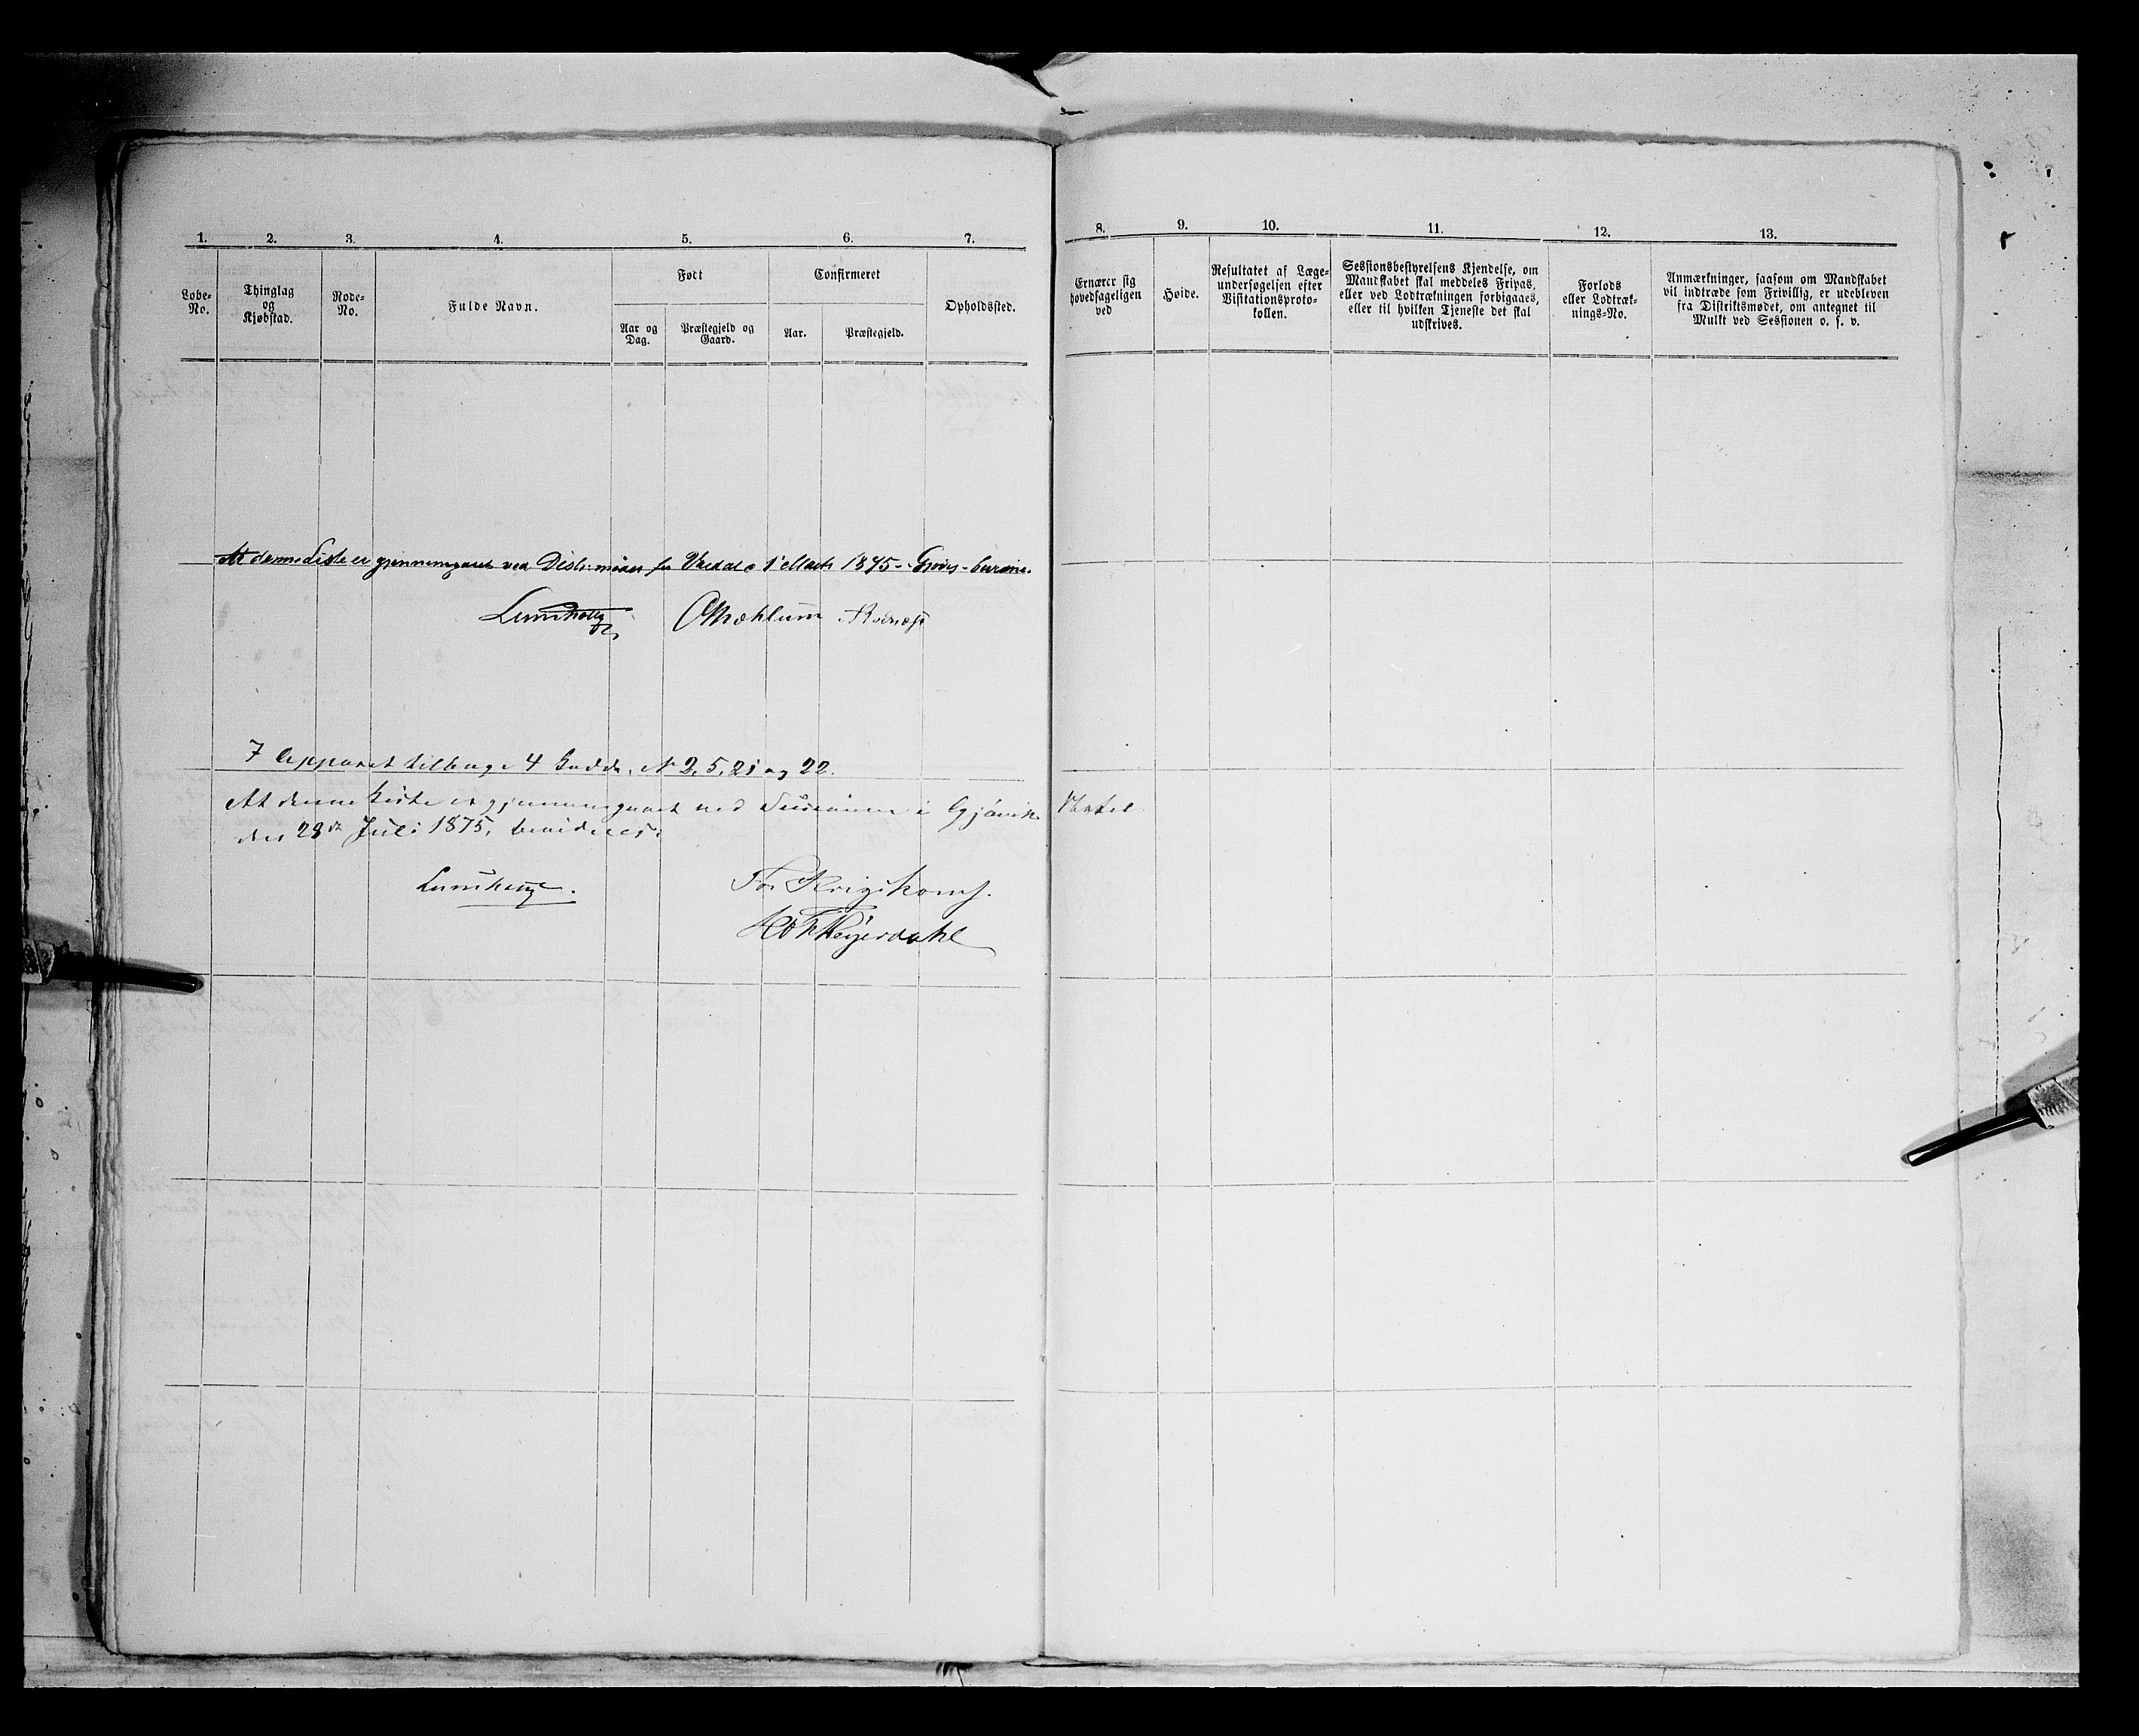 1. 2. 3. 4. 5. 6. 7.
Løbe-No.
Thinglag og Kjøbstad.
Rode-No.
Fulde Navn.
Født
Aar og Dag.
Præstegjeld og Gaard.
Confirmeret
Aar.
Præstegjeld.
Opholdssted.
8. 9. 10. 11. 12. 13.
Ernærer sig hovedsageligen ved
Høide.
Resultatet af Læge-
undersøgelsen efter
Visitationsproto-
kollen.
Sessionsbestyrelsens Kjendelse, om
Mandskabet skal meddeles Fripas,
eller ved Lodtrækningen forbigaaes,
eller til hvilken Tjeneste det skal
udskrives.
Forlods
eller Lodtræk-
nings-No.
Anmærkninger, saasom om Mandskabet
vil indtræde som Frivillig, er udebleven
fra Distriktsmødet, om antegnet til
Mulkt ved Sessionen o. s. v.
At denne Liste er gjennemgaaet ved Distr: mødet for Vardal 1 March 1875
7 tilbage 4 No 2, 5, 21 og 22.
At denne Liste er gjennemgaaet ved Sessionen i Gjøvik
den 28de Juli 1875, bevidnes.
For Krigskoms.